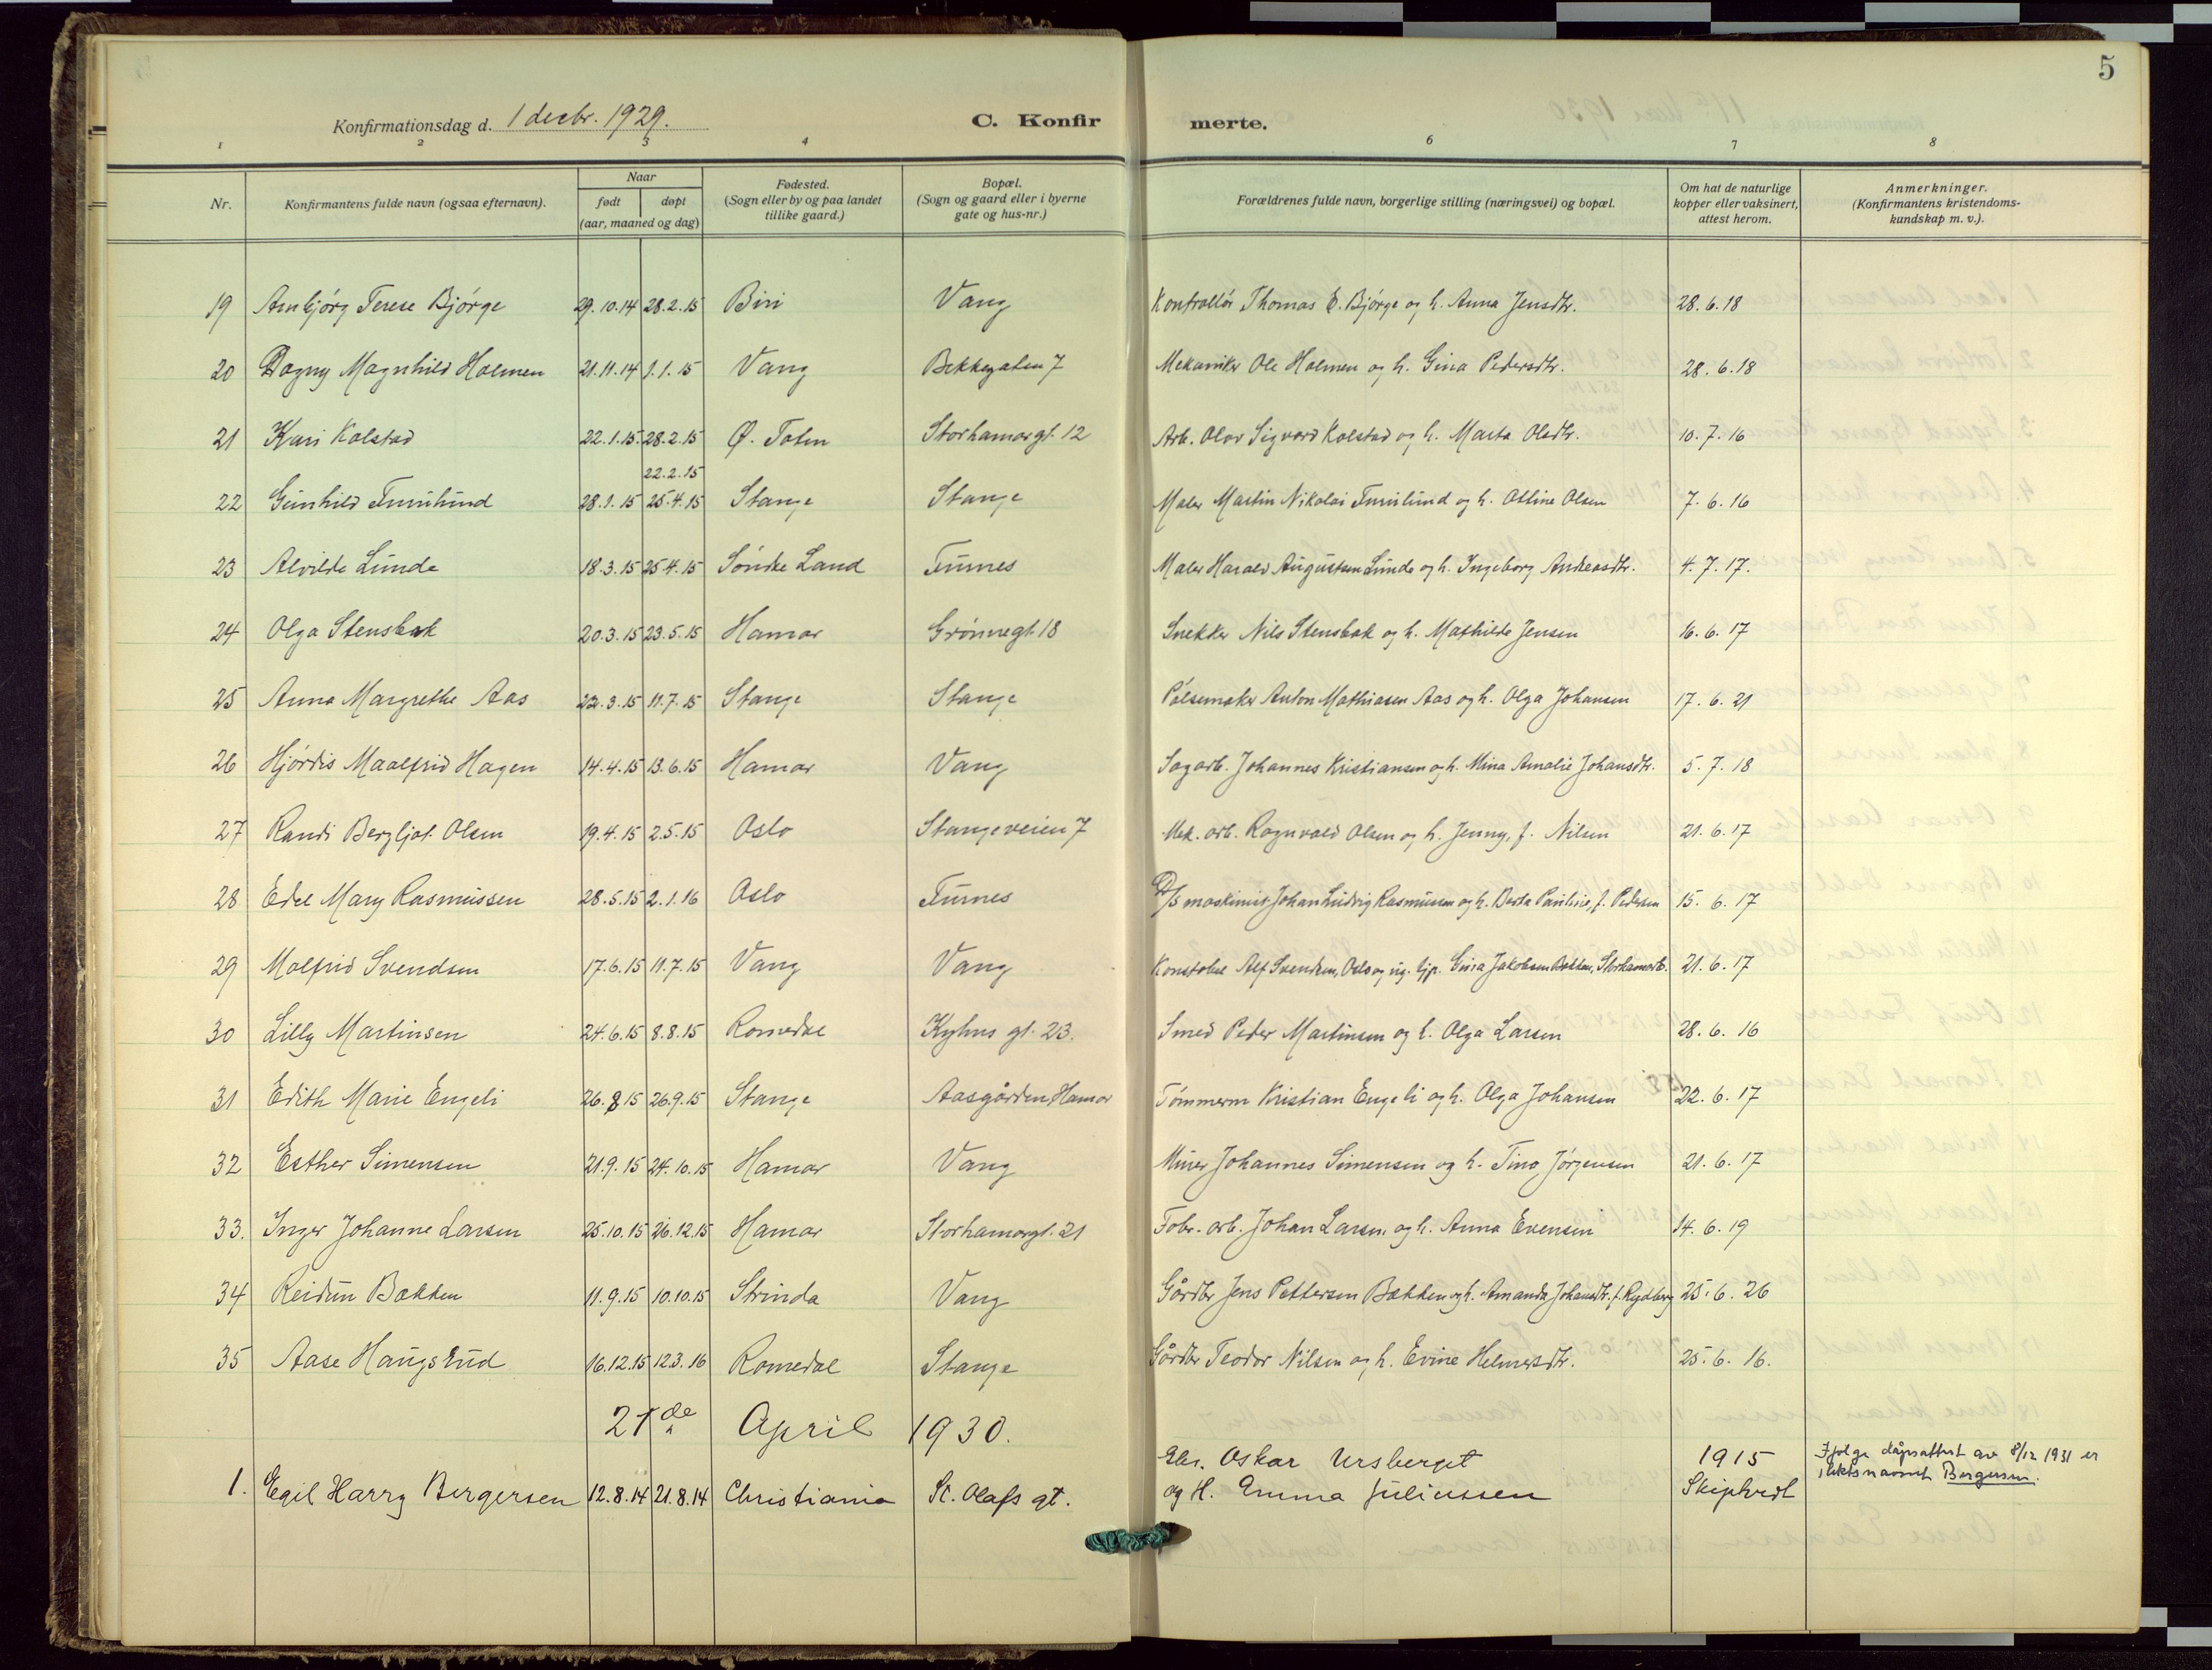 5
Konfirmationsdag d. 1 decbr. 1929.
C. Konfirmerte.
1 2 3 4 6 7 8
Nr. Konfirmantens fulde navn (ogsaa efternavn). Naar født døpt (aar, maaned og dag) Fødested. (Sogn eller by og paa landet tillike gaard.) Bopæl. (Sogn og gaard eller i byerne gate og hus-nr.) Forældrenes fulde navn, borgerlige stilling (næringsvei) og bopæl. Om hat de naturlige kopper eller vaksinert, attest herom. Anmerkninger. (Konfirmantens kristendomskundskap m. v.).
19 Arnbjörg Terese Bjørge 29.10.14 28.2.15 Biri Vang Kontrollör Thomas E. Bjørge og h. Anna Jensdtr. 28.6.18
20 Dagny Magnhild Holmen 21.11.14 1.1.15 Vang Bekkegaten 7 Mekaniker Ole Holmen og h. Gina Pedersdtr. 28.6.18
21 Kari Kolstad 22.1.15 28.2.15 Ø. Toten Storhamargt. 12 Arb. Olav Sigvard Kolstad og h. Marta Olsdtr. 10.7.16
22.2.15
22 Gunhild Furulund 28.1.15 25.4.15 Stange Stange Maler Martin Nikolai Furulund og h. Otline Olsen 7.6.16
23 Alvilde Lunde 18.3.15 25.4.15 Söndre Land Furnes Maler Harald Augustsen Lunde og h. Ingeborg Andreasdtr. 4.7.17.
24 Olga Stensbak 20.3.15 23.5.15 Hamar Grönnegt 18 Snekker Nils Stensbak og h. Mathilde Jensen 16.6.17
25 Anna Margrethe Aas 22.3.15 11.7.15 Stange Stange Pölsemaker Anton Mathiasen Aas og h. Olga Johansen 17.6.21
26 Hjördis Maalfrid Hagen 14.4.15 13.6.15 Hamar Vang Sagarb. Johannes Kristiansen og h. Mina Amalie Johansdtr. 5.7.18
27 Randi Bergljot Olsen 19.4.15 2.5.15 Oslo Stangeveien 7 Mek. arb. Ragnvald Olsen og h. Jenny, f. Nilsen 21.6.17
28 Edel Mary Rasmussen 28.5.15 2.1.16 Oslo Furnes D/S maskinist Johan Ludvig Rasmussen og h. Berta Pauline, f. Pedersen 15.6.17
29 Molfrid Svendsen 17.6.15 11.7.15 Vang Vang Konstabel Alf Svendsen, Oslo og ug. tjp. Gina Jakobsen Bakken, 21.6.17
30 Lilly Martinsen 24.6.15 8.8.15 Romedal Kyhns gt. 23. Smed Peder Martinsen og h. Olga Larsen 28.6.16
31 Edith Marie Engeli 26.8.15 26.9.15 Stange Aasgården, Hamar Tömmerm Kristian Engeli og h. Olga Johansen 22.6.17
32 Esther Simensen 21.9.15 24.10.15 Hamar Vang Murer Johannes Simensen og h. Tina Jörgensen 21.6.17
33. Inger Johanne Larsen 25.10.15 26.12.15 Hamar Storhamargt. 21 Fabr. arb. Johan Larsen og h. Anna Evensen 14.6.19
34 Reidun Bakken 11.9.15 10.10.15 Strinda Vang Gårdbr Jens Pettersen Bakken og h. Amanda Johansdtr. f. Rydberg 25.6.26
35 Aase Haugsrud 16.12.15 12.3.16 Romedal Stange Gårdbr Teodor Nilsen og h. Evine Helmersdtr. 25.6.16.
27de April 1930.
1. Egil Harry Bergersen 12.8.14 21.8.14 Christiania St. Olafs gt. Oskar Ursberget og H. Emma Juliussen 1915 Skiptvedt Ifølge dåpsattest av 8/12 1931 er slektsnavnet Bergersen.